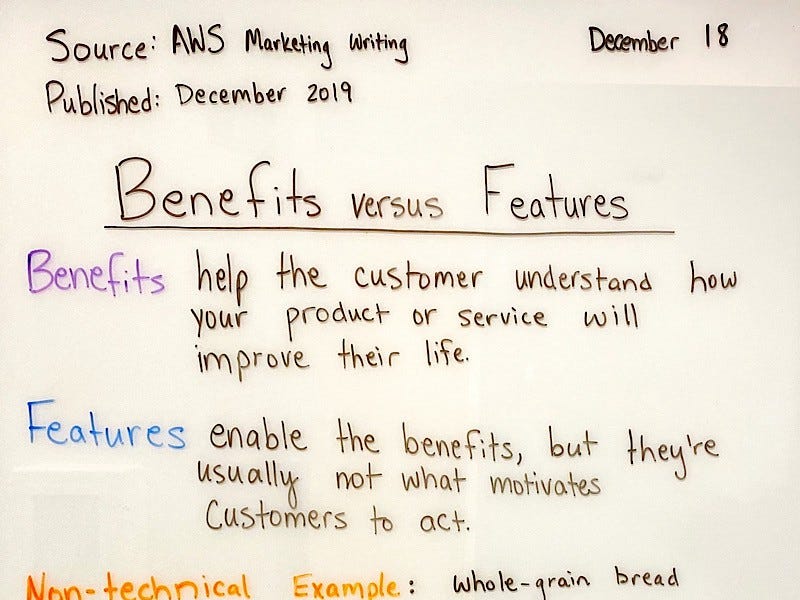 Source: AWS Marketing Writing
December 18
Published: December 2019
Benefits versus Features
Benefits help the customer understand how
your product or service will
improve their life.
Features enable the benefits, but they're
usually not what motivates
Customers to act.
Non-technical Example: whole-grain bread